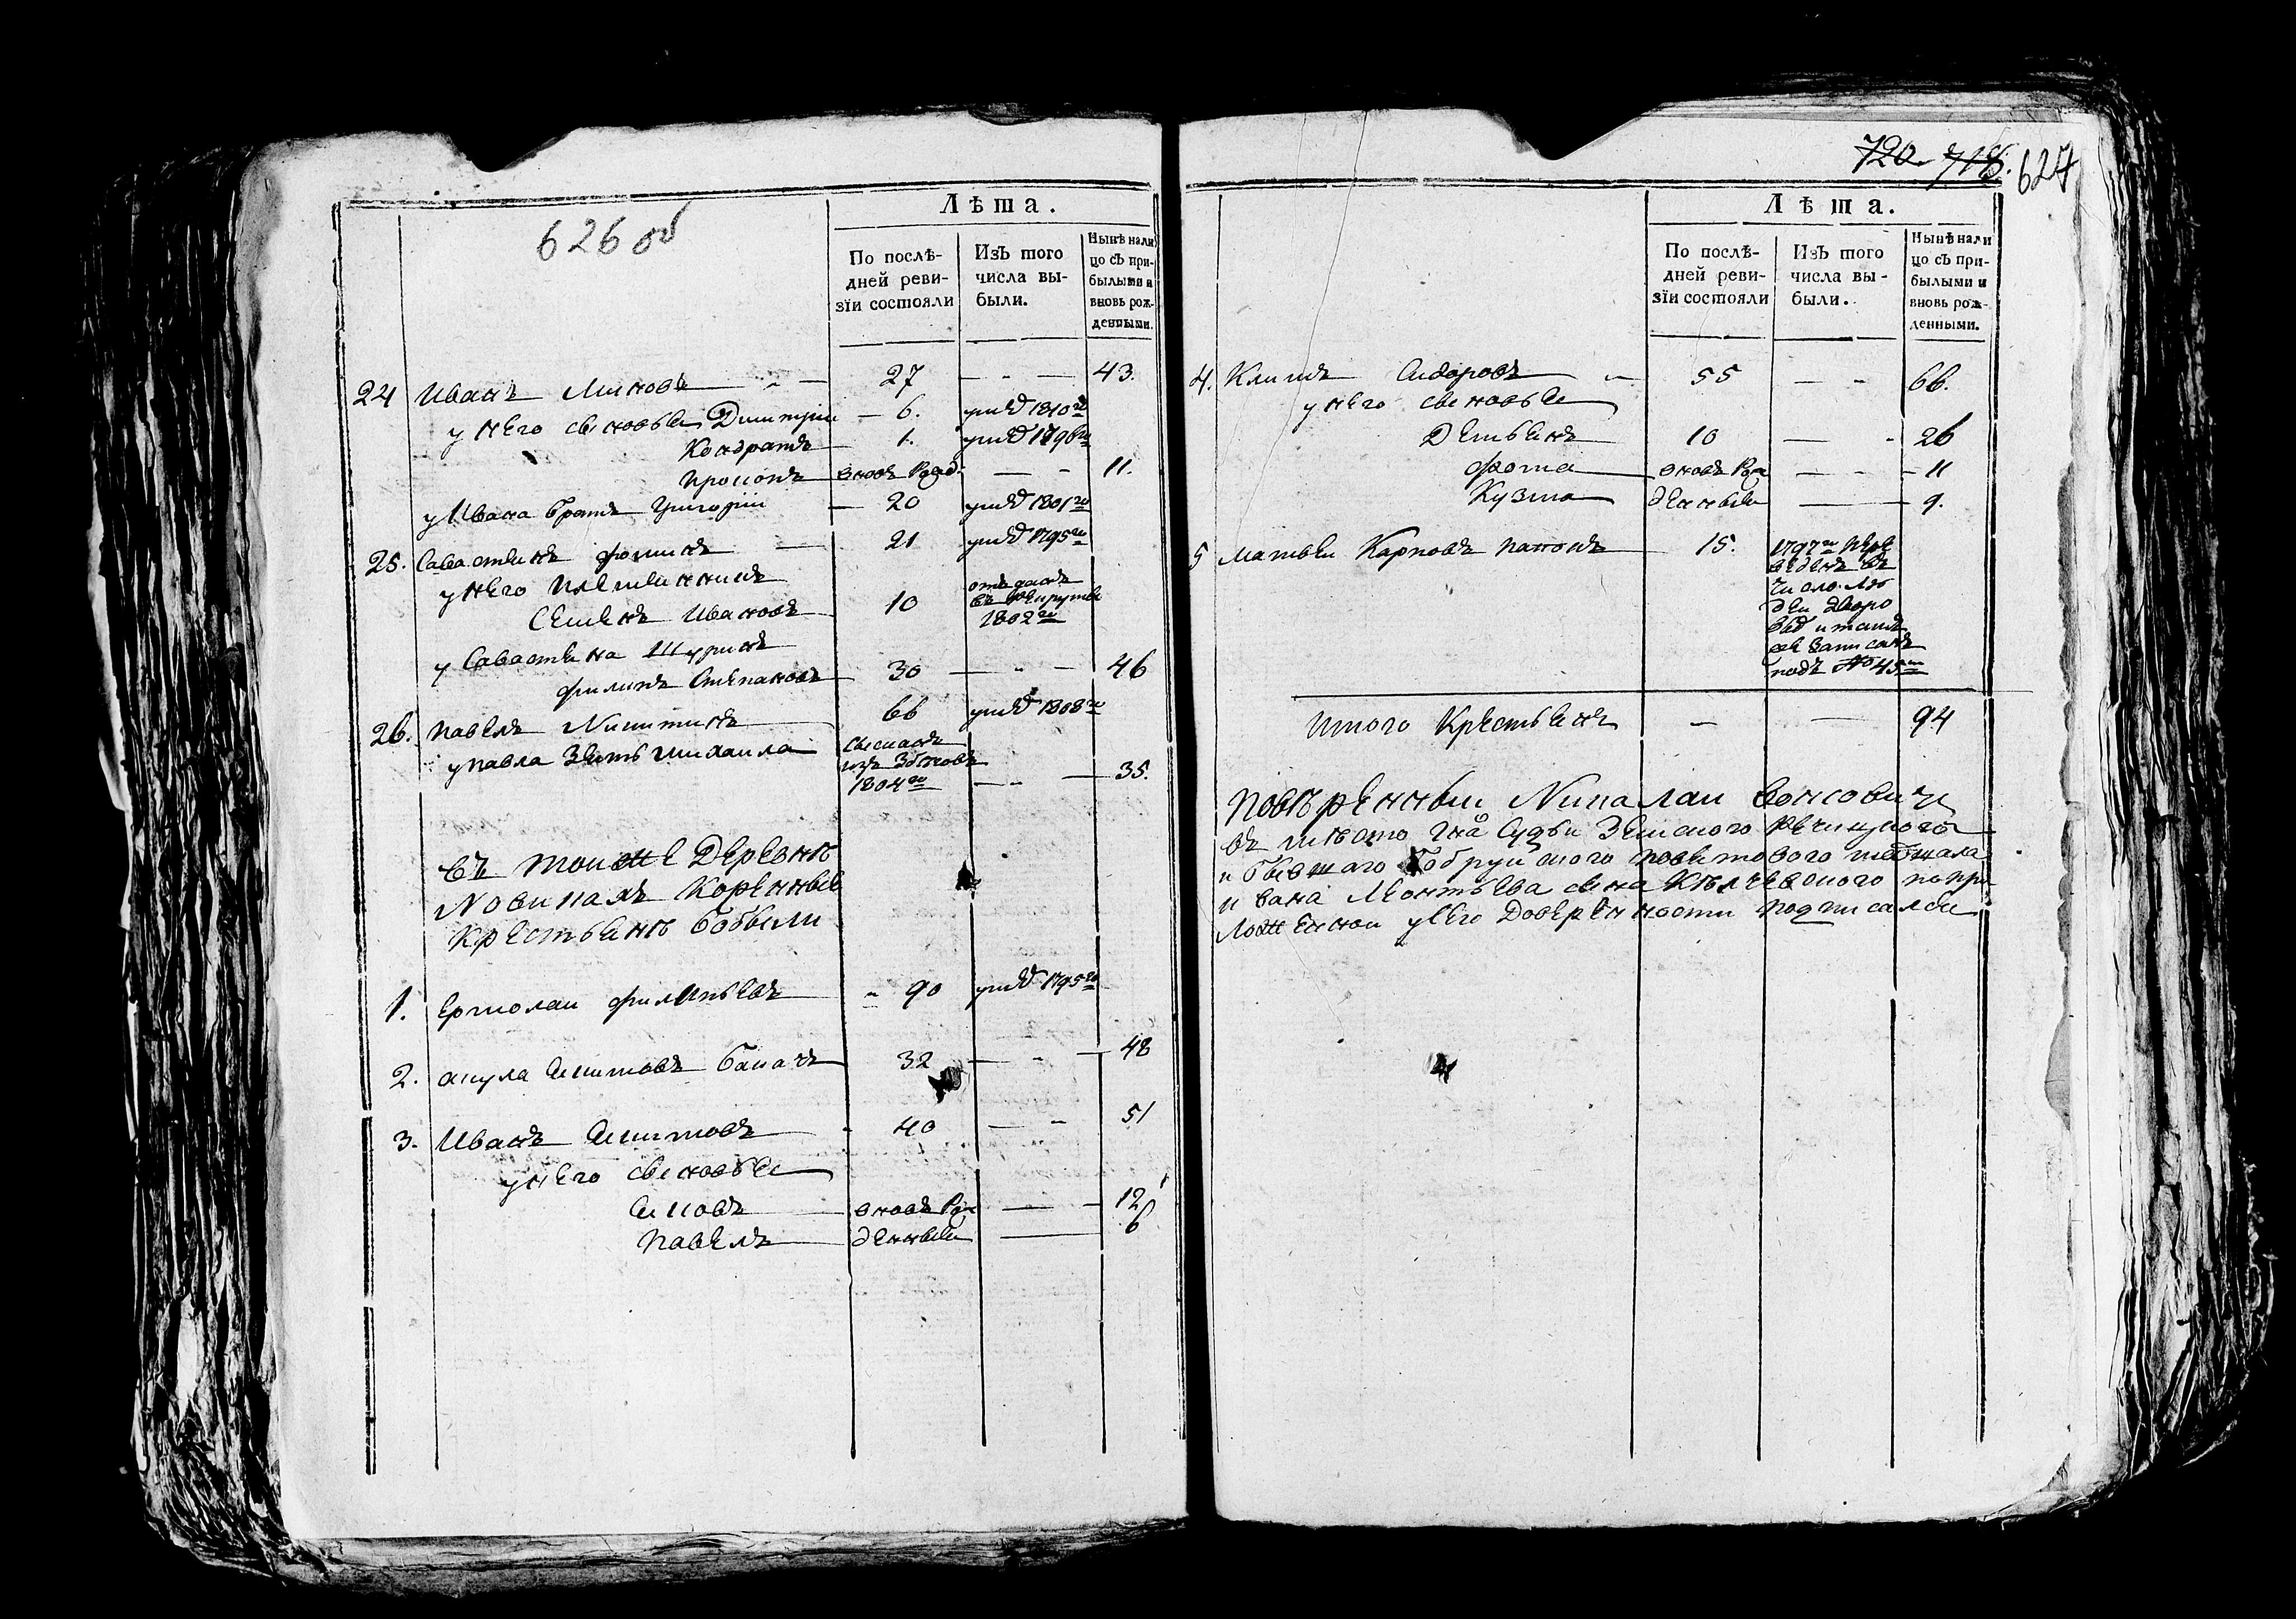 626 об
Лѣта.
По послѣ-
дней реви-
зїи состояли
Изъ того
числа вы-
были.
Нынѣ нали
цо съ при-
былыми и
вновь рож-
денными.
24 Иванъ Миновъ 27 — 43.
у него сыновья Дмитрий — 6. умр 1810го
Кондратъ 1. умр 1796го
Прокопъ вновь Рожд. — 11.
у Ивана братъ Григорий — 20 умр 1801го
25. Савастьянъ Фоминъ 21 умр 1795го
у него племянникъ
Семенъ Ивановъ 10 отъданъ
въ рекруты
1802го
у Савастьяна шуринъ
Филипъ Степановъ 30 — 46
26. Павелъ Никитинъ 66 умр 1808го
у Павла зять Михаила
изъ
1804го — 35.
въ тойже Деревнѣ
Новикахъ Коренные
Крестьянѣ бобыли
1. Ермолай Филипьевъ 90 умр 1795го
2. Акула Аникин Банатъ 32 — 48
3. Иванъ 40 — 51
у него сыновья
вновь Ро 12
Павелъ — денные 6
720. 718. 627
Лѣта.
По послѣ-
дней реви-
зїи состояли
Изъ того
числа вы-
были.
Нынѣ нали
цо съ при-
былыми и
вновь рож-
денными.
4. Климъ Сидоровъ 55 — 66.
у него сыновья
Демьянъ 10 — 26
Фома вновь Рож 11
Кузма денные — 9.
5 Матвей Карповъ 15. 1797го пере
веденъ въ
число лю
дей дворо
выхъ и тамъ
же записанъ
подъ № 45м
Итого Крестьянъ — 94
Повѣренный Николай
въ мѣсто Гна Судьи Земского Речицкого
и бывшаго Бобруйского поветового маршала
Ивана Леонтьева сына по при
ложенной у сего Доверенности подписался